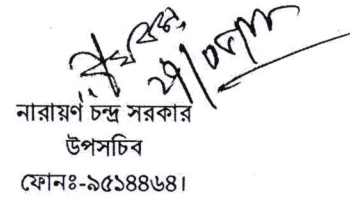 নারায়ণ চন্দ্র সরকার
উপসচিব
ফোনঃ-৯৫১৪৪৬৪।